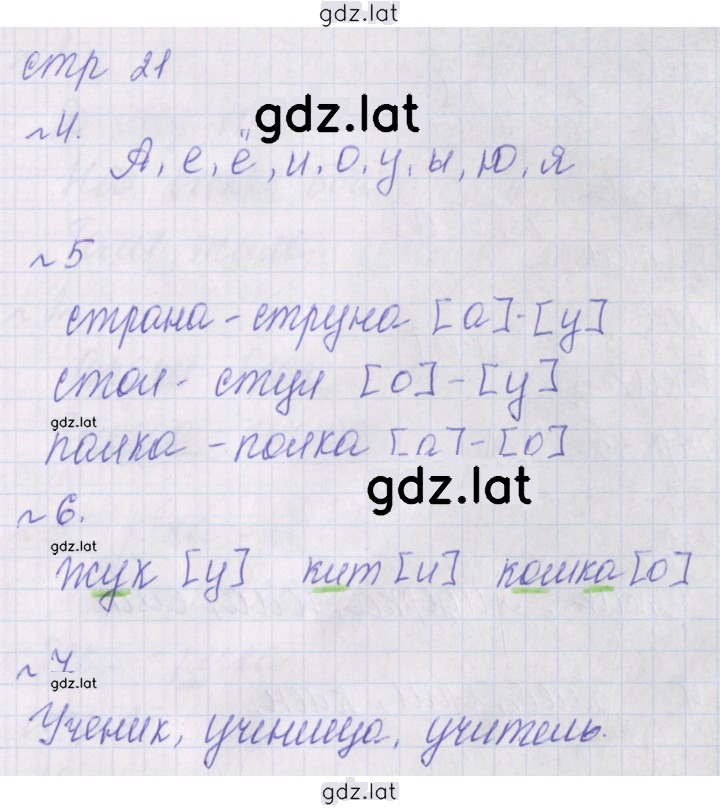 gdz.lat
стр 21
gdz.lat
№ 4.
А, е, ё, и, о, у, ы, ю, я
№ 5
страна - струна [а] - [у]
стол - стул [о] - [у]
gdz.lat
палка - полка [а] - [о]
gdz.lat
№ 6.
gdz.lat
жук [у] кит [и] кошка [о]
№ 7
gdz.lat
Ученик, ученица, учитель.
gdz.lat